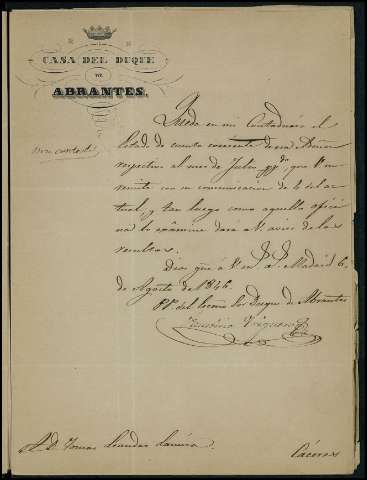 CASA DEL DUQUE
DE
ABRANTES.
Queda en mi Contaduría el
Estado de cuenta corriente de esa Admon
respectivo al mes de Julio ppdo, que V. re-
mite con su comunicacion de 4 del ac-
tual, y tan luego como aquella ofici-
na lo examine dará á V. aviso de las
resultas.
Dios gue á V. m. a. Madrid 6
de Agosto de 1846.
P.P. del Excmo Sor Duque de Abrantes
Sr. D. Tomas
Cáceres